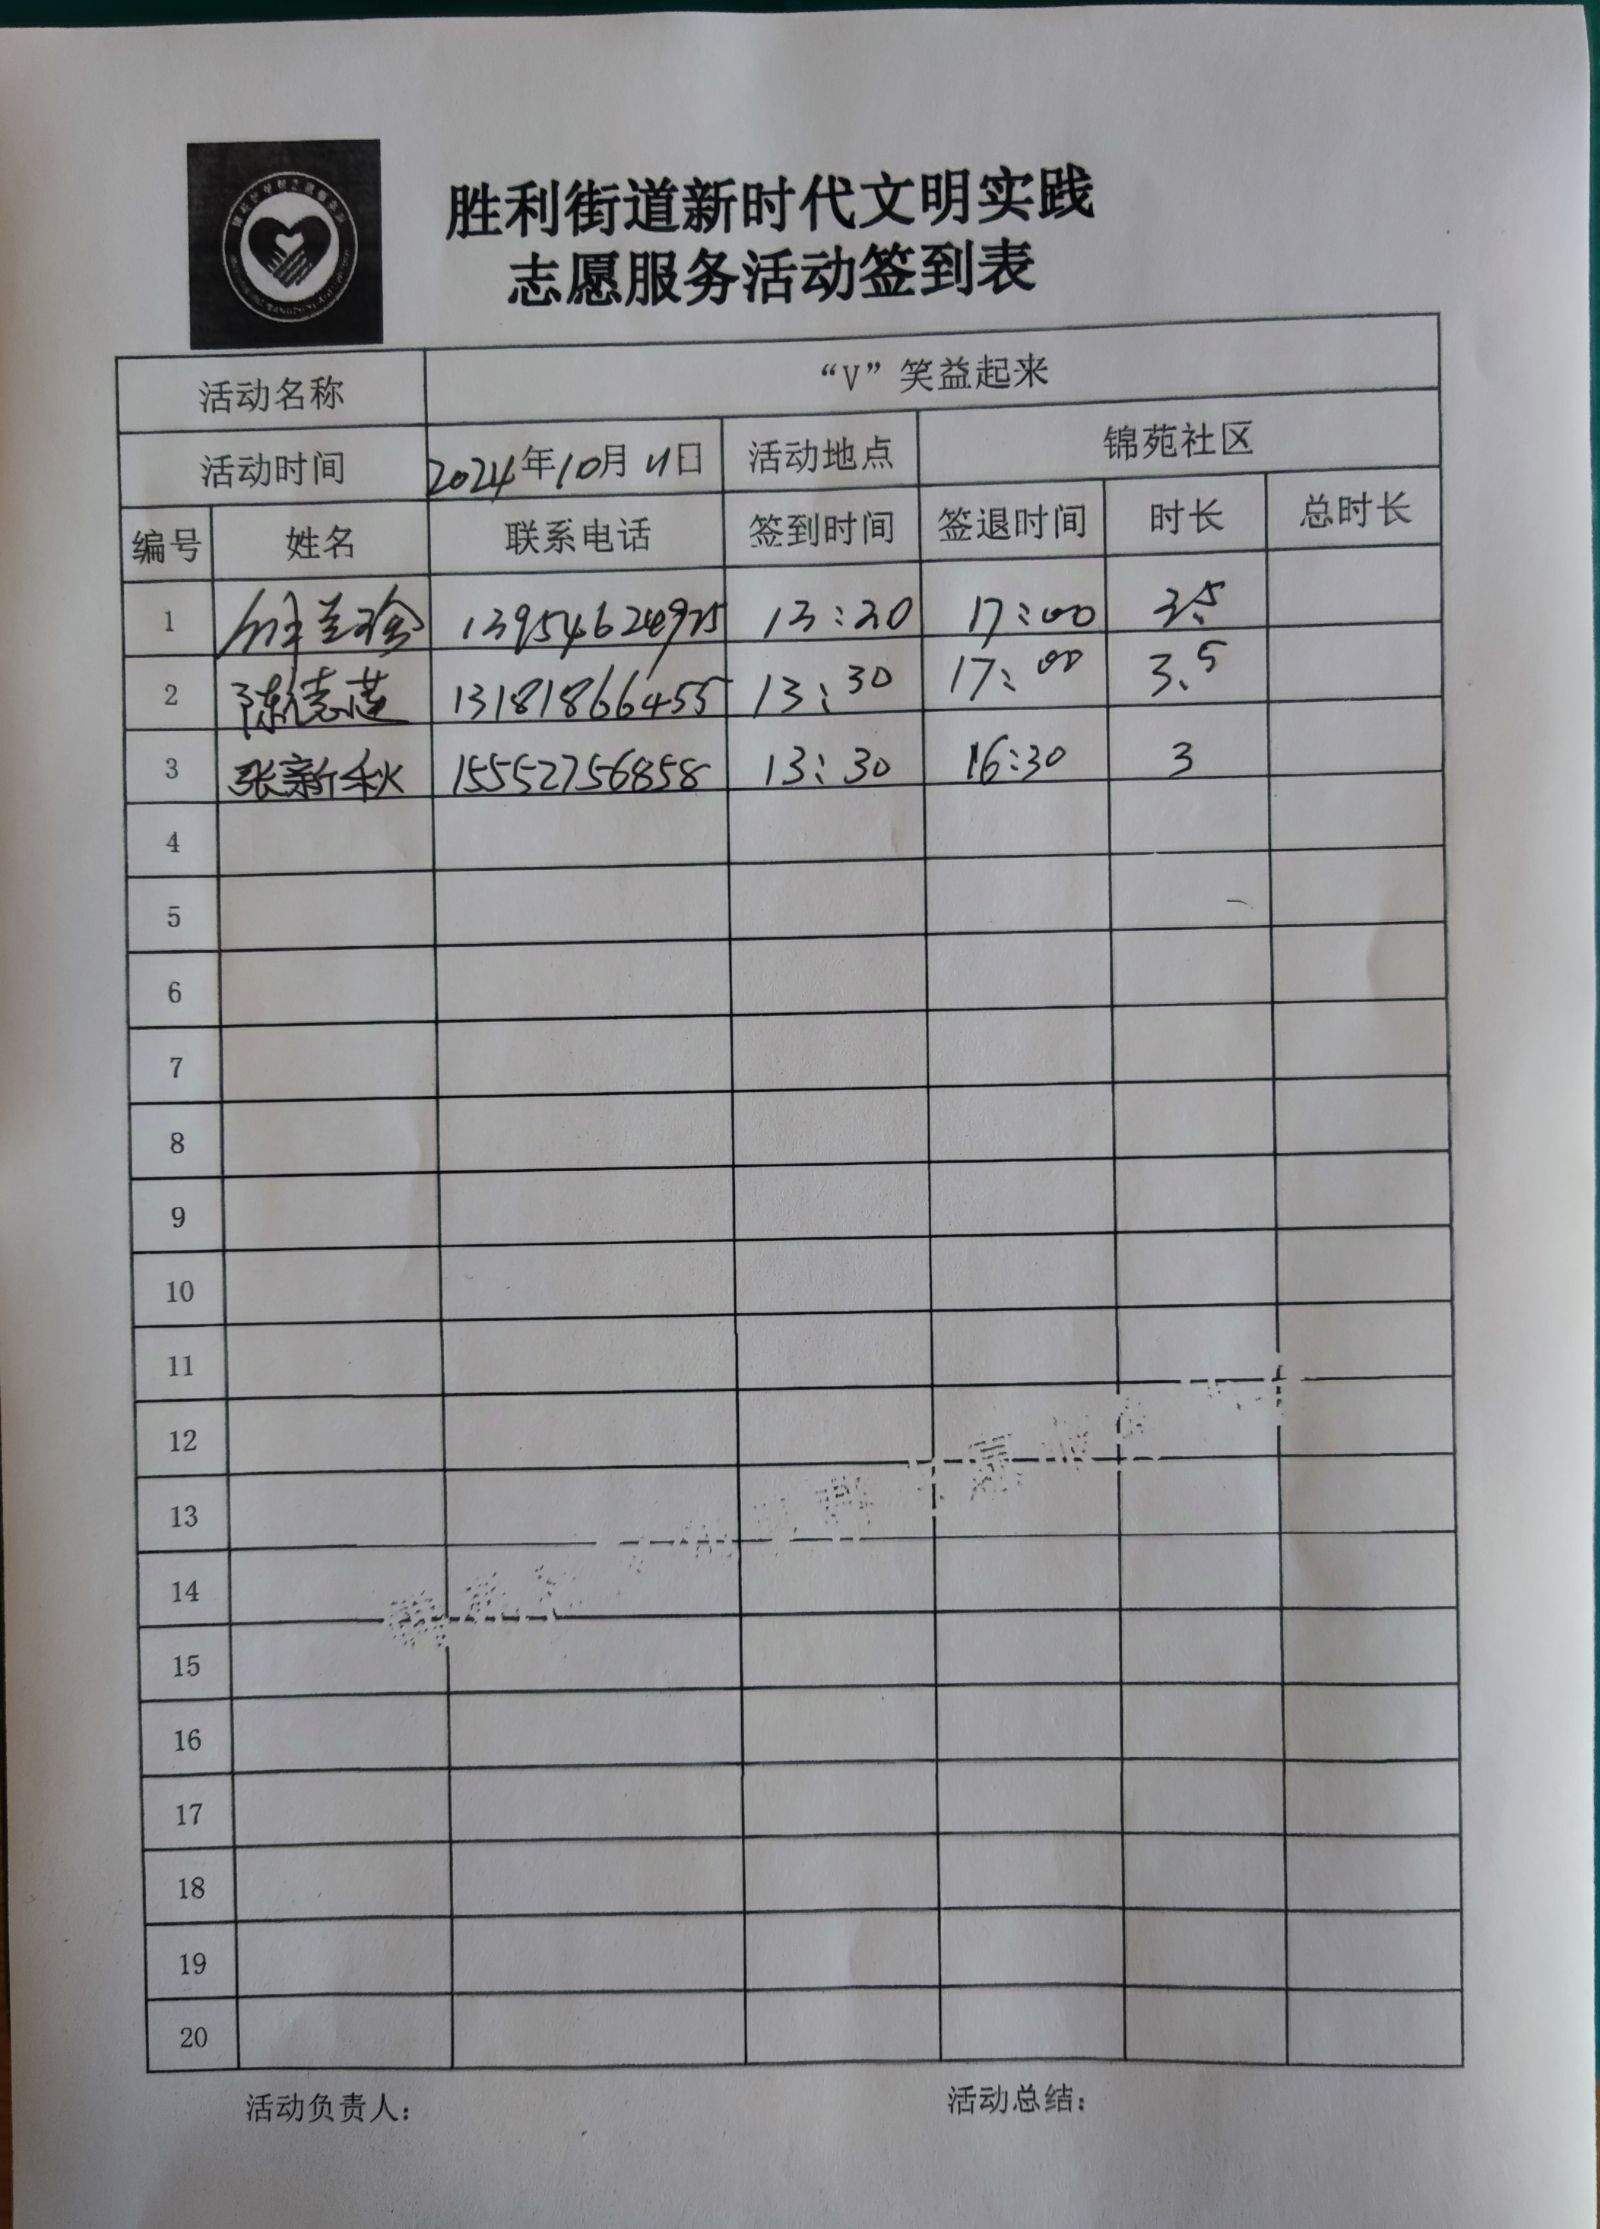 胜利街道新时代文明实践
志愿服务活动签到表
活动名称 “V”笑益起来
活动时间 2024年10月11日 活动地点 锦苑社区
编号 姓名 联系电话 签到时间 签退时间 时长 总时长
1 13954624925 13:30 17:00 3.5
2 陈德莲 13181866455 13:30 17:00 3.5
3 张新秋 15552756858 13:30 16:30 3
4
5
6
7
8
9
10
11
12
13
14
15
16
17
18
19
20
活动负责人: 活动总结: